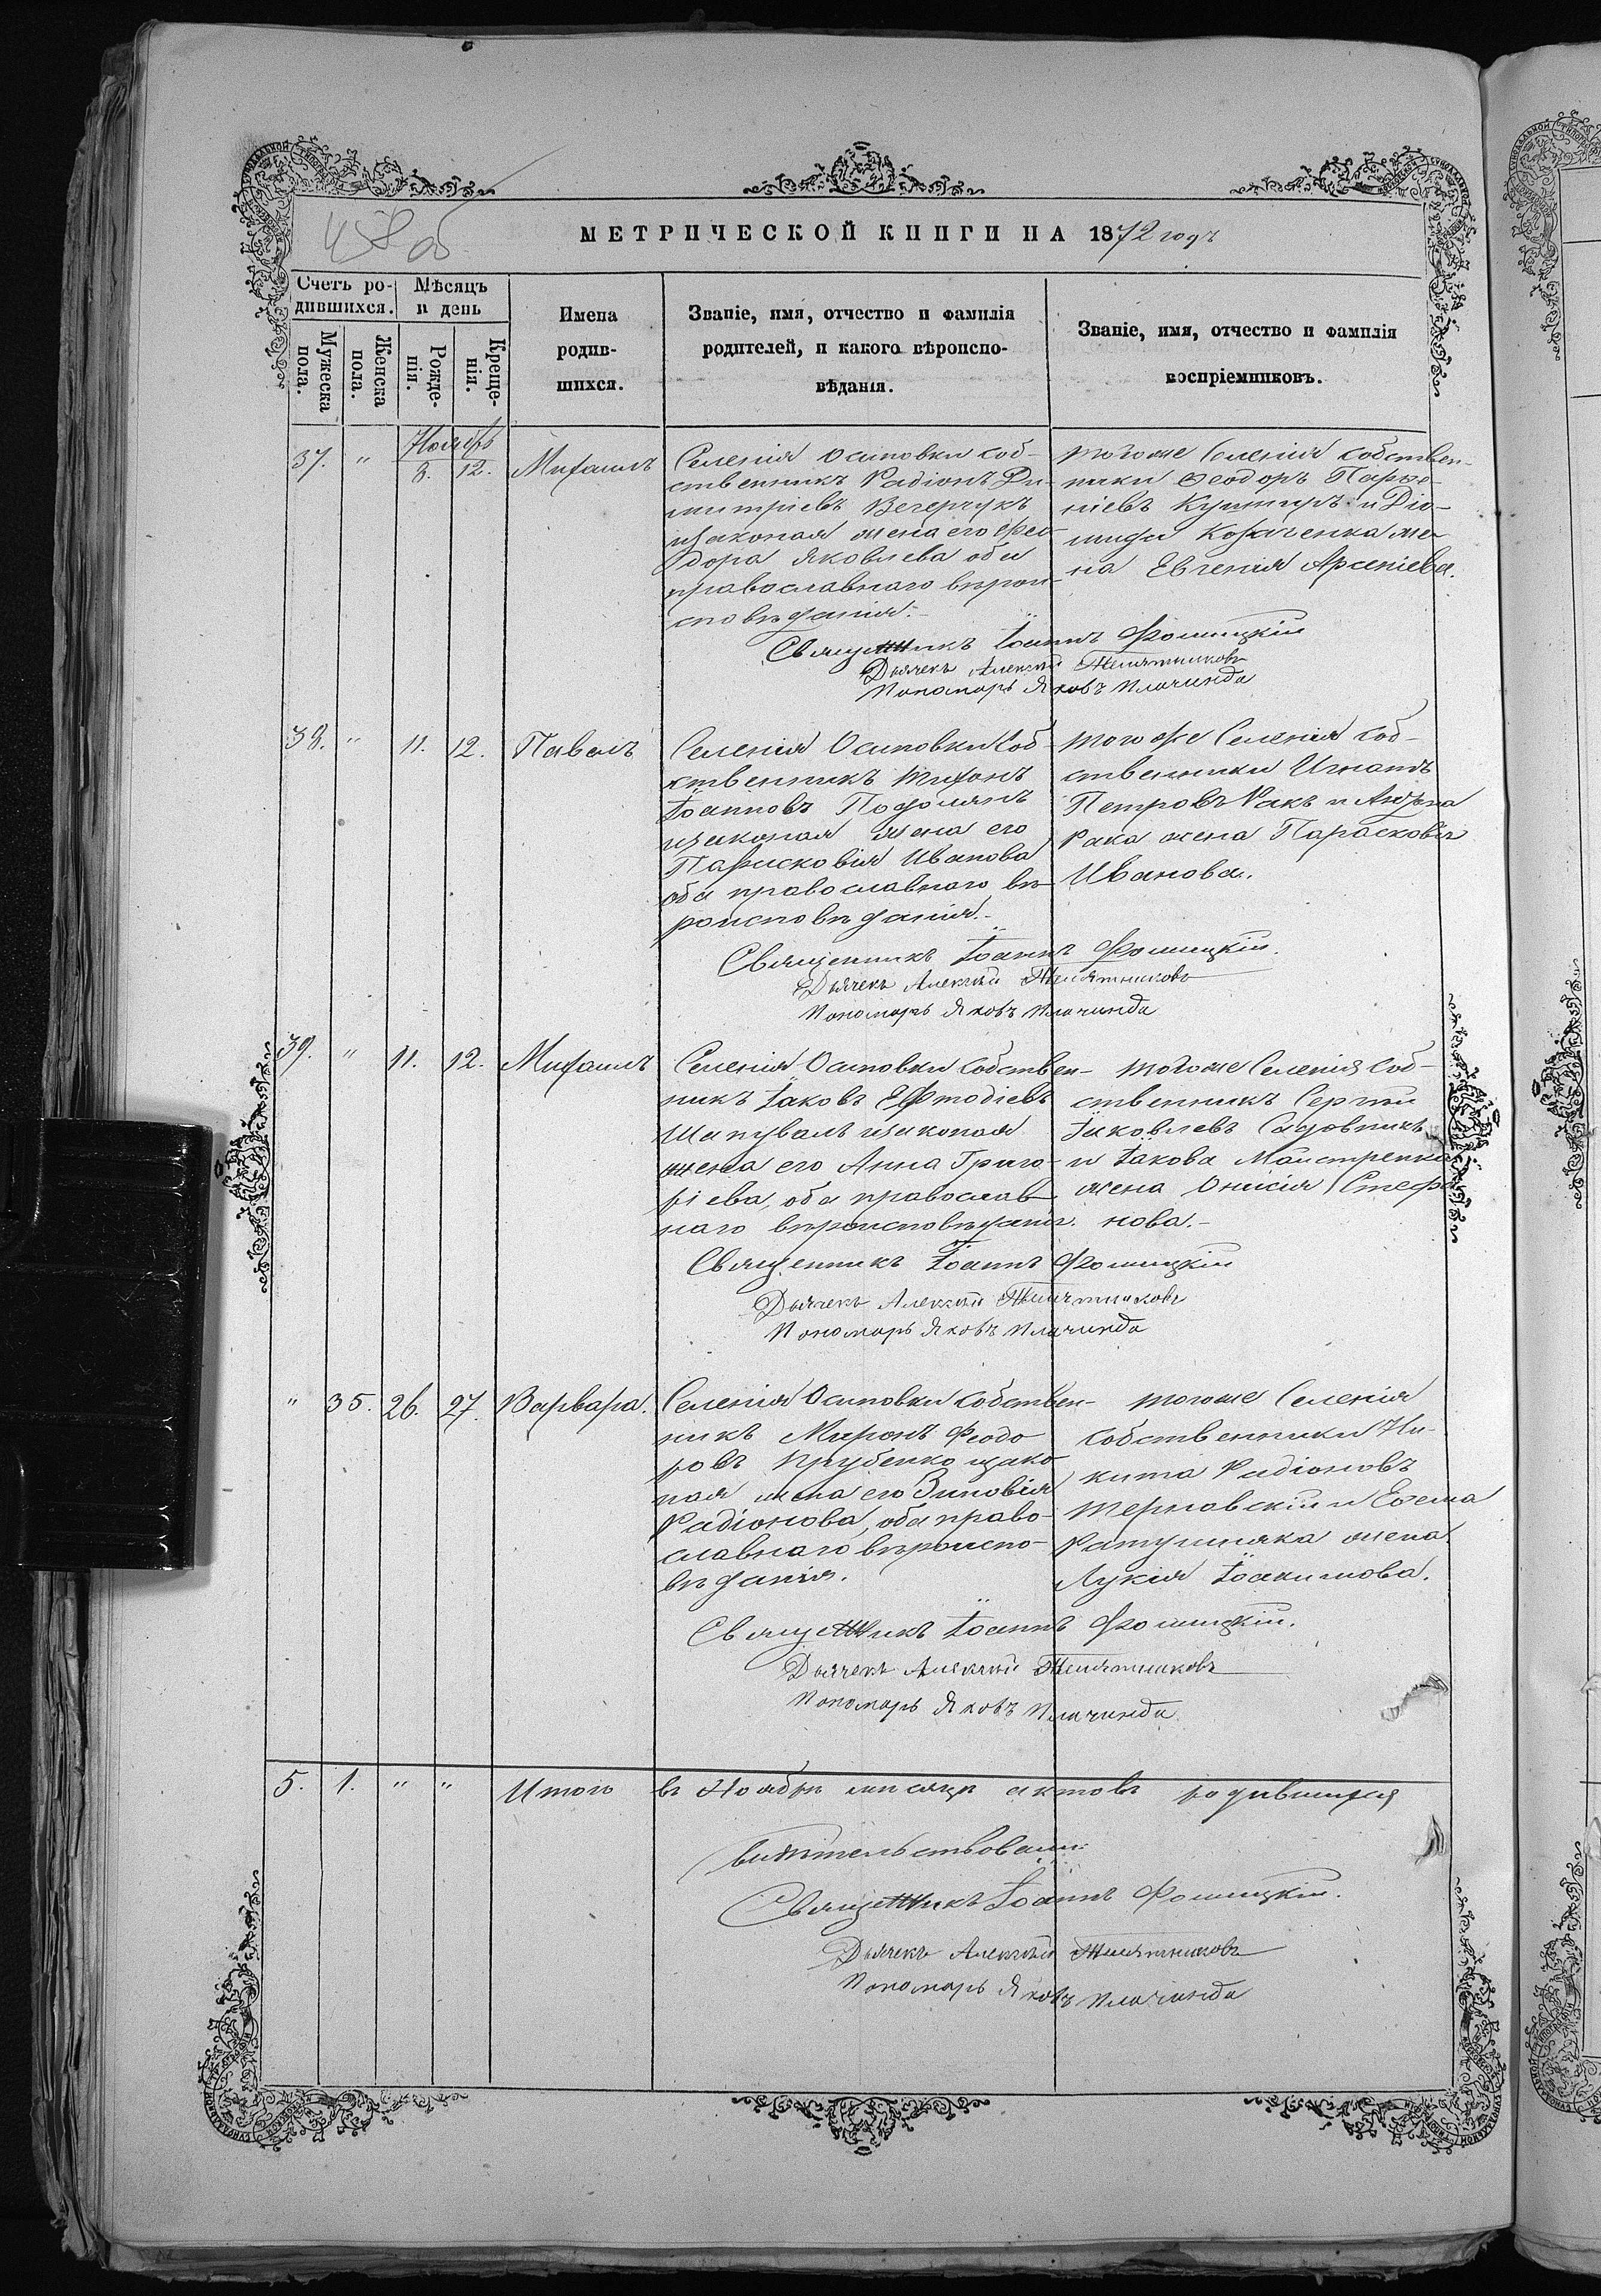 МЕТРИЧЕСКОЙ КНИГИ НА 1872 годъ
Счетъ ро-
дившихся.
Мѣсяцъ
и день
Мужеска
пола.
Женска
пола.
Рожде-
нія.
Креще-
нія.
Имена
родив-
шихся.
Званіе, имя, отчество и фамилія
родителей, и какого вѣроиспо-
вѣданія.
Званіе, имя, отчество и фамилія
воспріемниковъ.
Ноябрь
37. " 8. 12. Михаилъ
Селенія Осиповки соб-
ственникъ Радіонъ Ди-
митріевъ Вечерчукъ
изаконая жена его Фео-
дора Яковлева оба
православнаго вѣрои-
сповѣданія.-
тогоже Селенія собствен-
ники Ѳеодоръ
Кушниръ и Діо-
жe-
на Евгенія Арсеніева.
Священникъ Іоаннъ Фомицкій
Дьячекъ Алексѣй Телятниковъ
Пономарь Яковъ Плачинда
38. " 11. 12. Павелъ
Селенія Осиповки Соб-
ственникъ Тихонъ
Іоанновъ Подолянъ
изаконая жена его
Парисковія Иванова
оба православнаго вѣ-
роисповѣданія.-
тогоже Селенія соб-
ственники Игнатъ
Петровъ Ракъ и Андрея
Рака жена Парасковія
Иванова.
Священникъ Іоаннъ Фомицкій.
Дьячекъ Алексѣй Телятниковъ
Пономарь Яковъ Плачинда
39. " 11. 12. Михаилъ
Селенія Осиповки Собствен-
никъ Іаковъ Евтодіевъ
Шаповалъ изаконая
жена его Анна Григо-
ріева, оба православ-
наго вѣроисповѣданія.
тогоже Селенія Соб-
ственникъ Сергѣй
Іаковлевъ Садовникъ
и Іакова Маистренка
жена Онисія Стефа
нова.-
Священникъ Іоаннъ Фомицкій
Дьячекъ Алексѣй Телятниковъ
Пономарь Яковъ Плачинда
" 35. 26. 27. Варвара.
Селенія Осиповки собствен-
никъ Миронъ Феодо
ровъ Прубенко изако
ная жена его Зиновія
Радіонова, оба право-
славнаго вѣроиспо-
вѣданія.
тогоже Селенія
Собственники Ни-
кита Радіоновъ
Терновскій и Ефема
Ратушняка жена
Лукія Іоакимова.
Священникъ Іоаннъ Фомицкій.
Дьячекъ Алексѣй Телятниковъ
Пономарь Яковъ Плачинда
5. 1. " " Итого въ Ноябрѣ мѣсяцѣ актовъ родившихся
Священникъ Іоаннъ Фомицкій.
Дьячекъ Алексѣй Телятниковъ
Пономарь Яковъ Плачинда